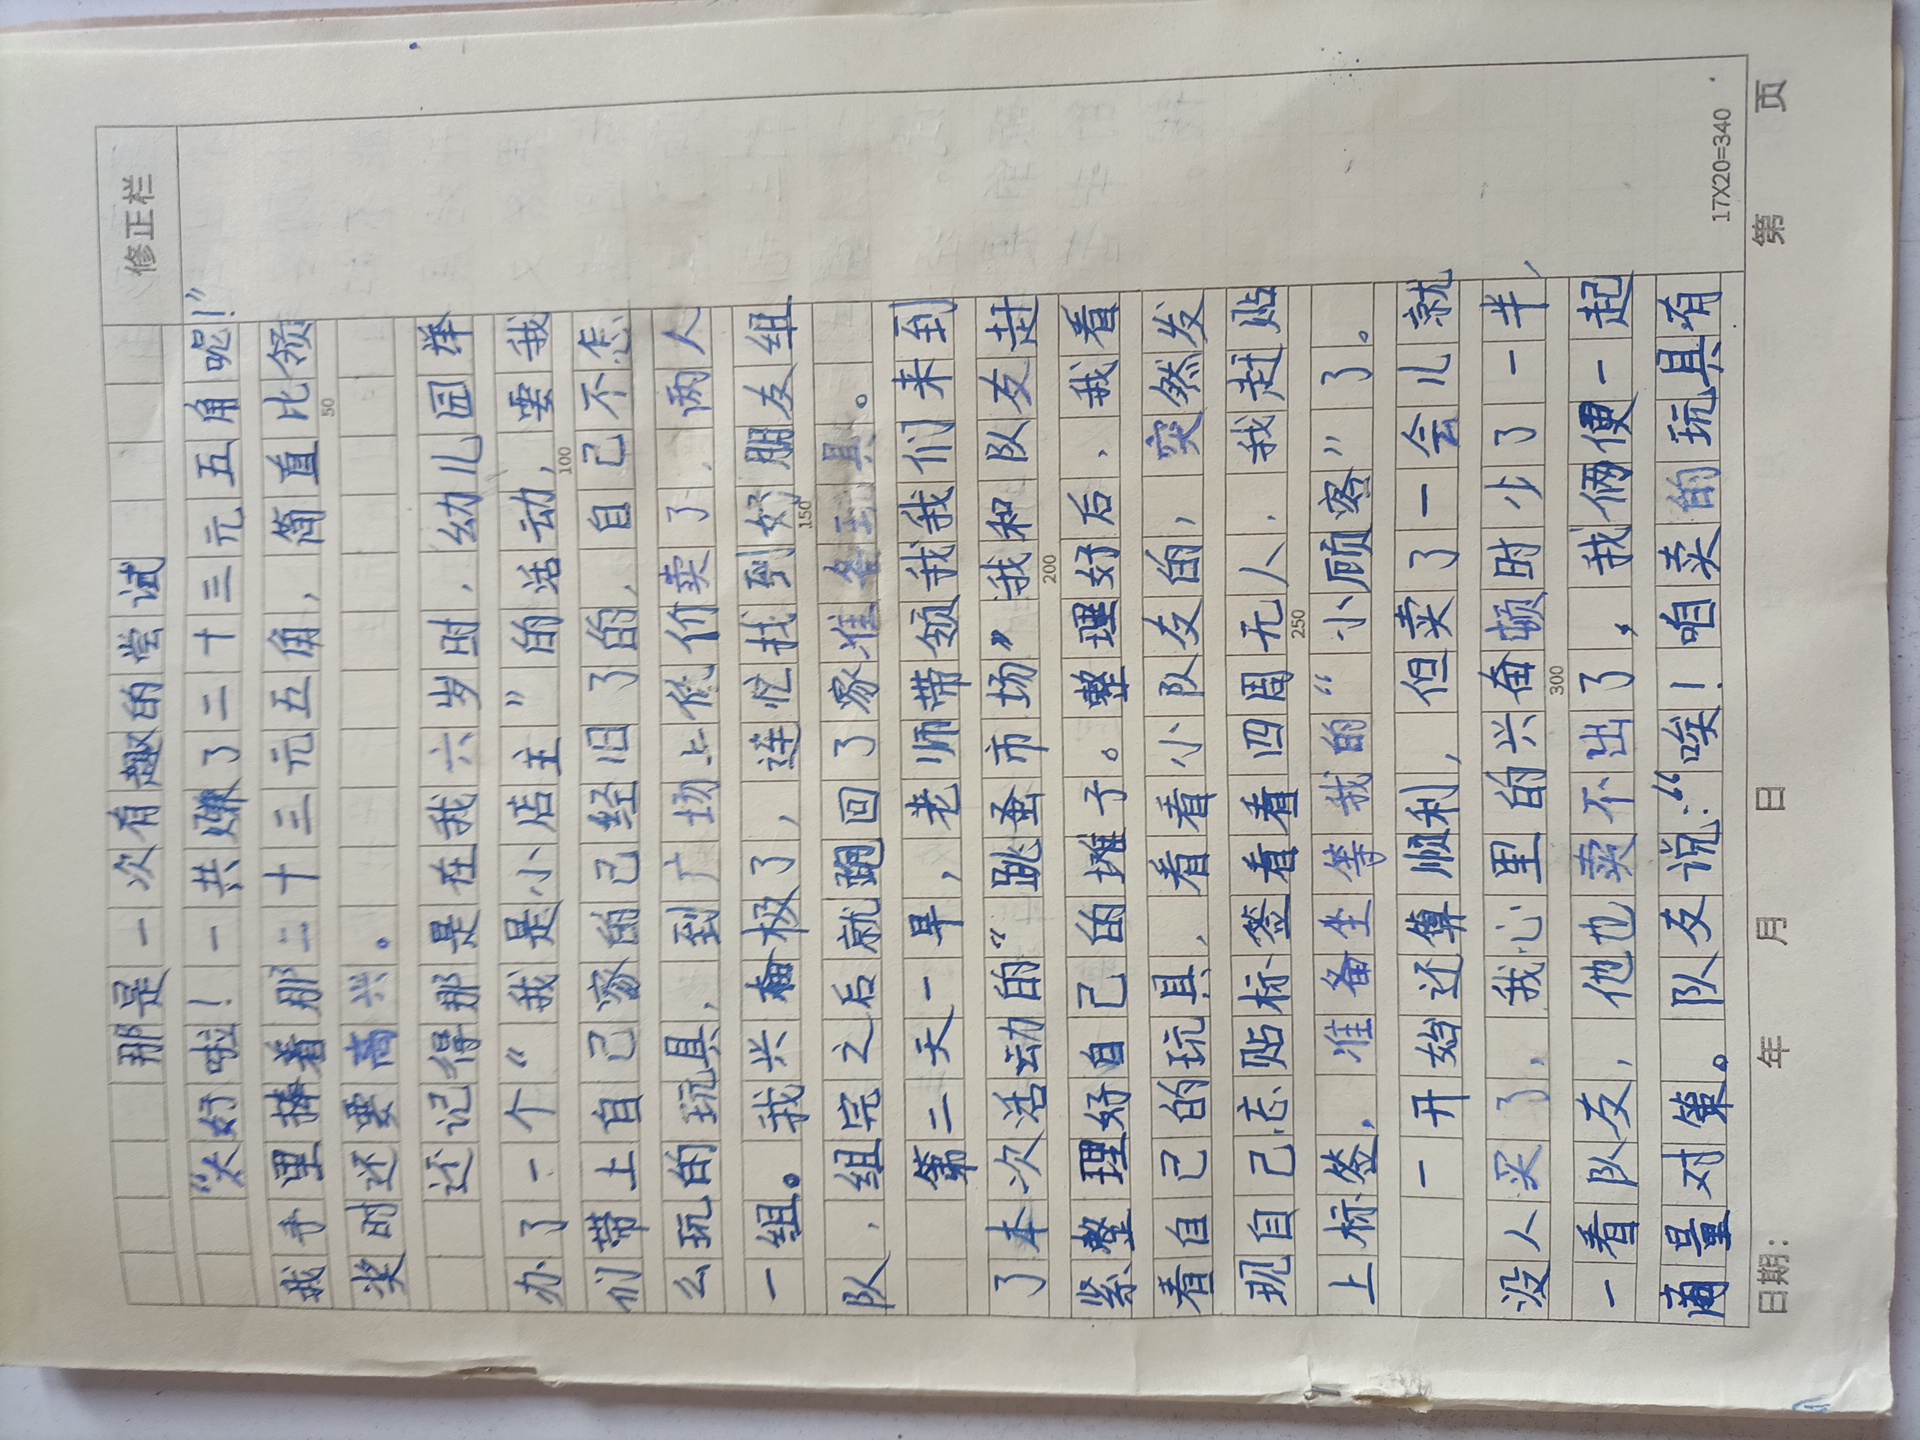 修正栏
那是一次有趣的尝试
“太好啦!一共赚了二十三元五角呢!”
我手里捧着那二十三元五角,简直比领
奖时还要高兴。
还记得那是在我六岁时,幼儿园举
办了一个“我是小店主”的活动,要我
们带上自己家的已经旧了的,自己不怎
么玩的玩具,到广场上优价卖了,两人
一组。我兴奋极了,连忙找到好朋友组
队,组完之后就跑回了家准备玩具。
第二天一早,老师带领我我们来到
了本次活动的“跳蚤市场”我和队友赶
紧整理好自己的摊子。整理好后,我看
看自己的玩具,看看小队友的,突然发
现自己忘贴标签看看四周无人,我赶贴
上标签,准备坐等我的“小顾客”了。
一开始还算顺利,但卖了一会儿就
没人买了,我心里的兴奋顿时少了一半,
一看队友,他也卖不出了,我俩便一起
商量对策。队友说:“唉!咱卖的玩具有
50
100
150
200
250
300
17X20=340
日期: 年 月 日 第 页